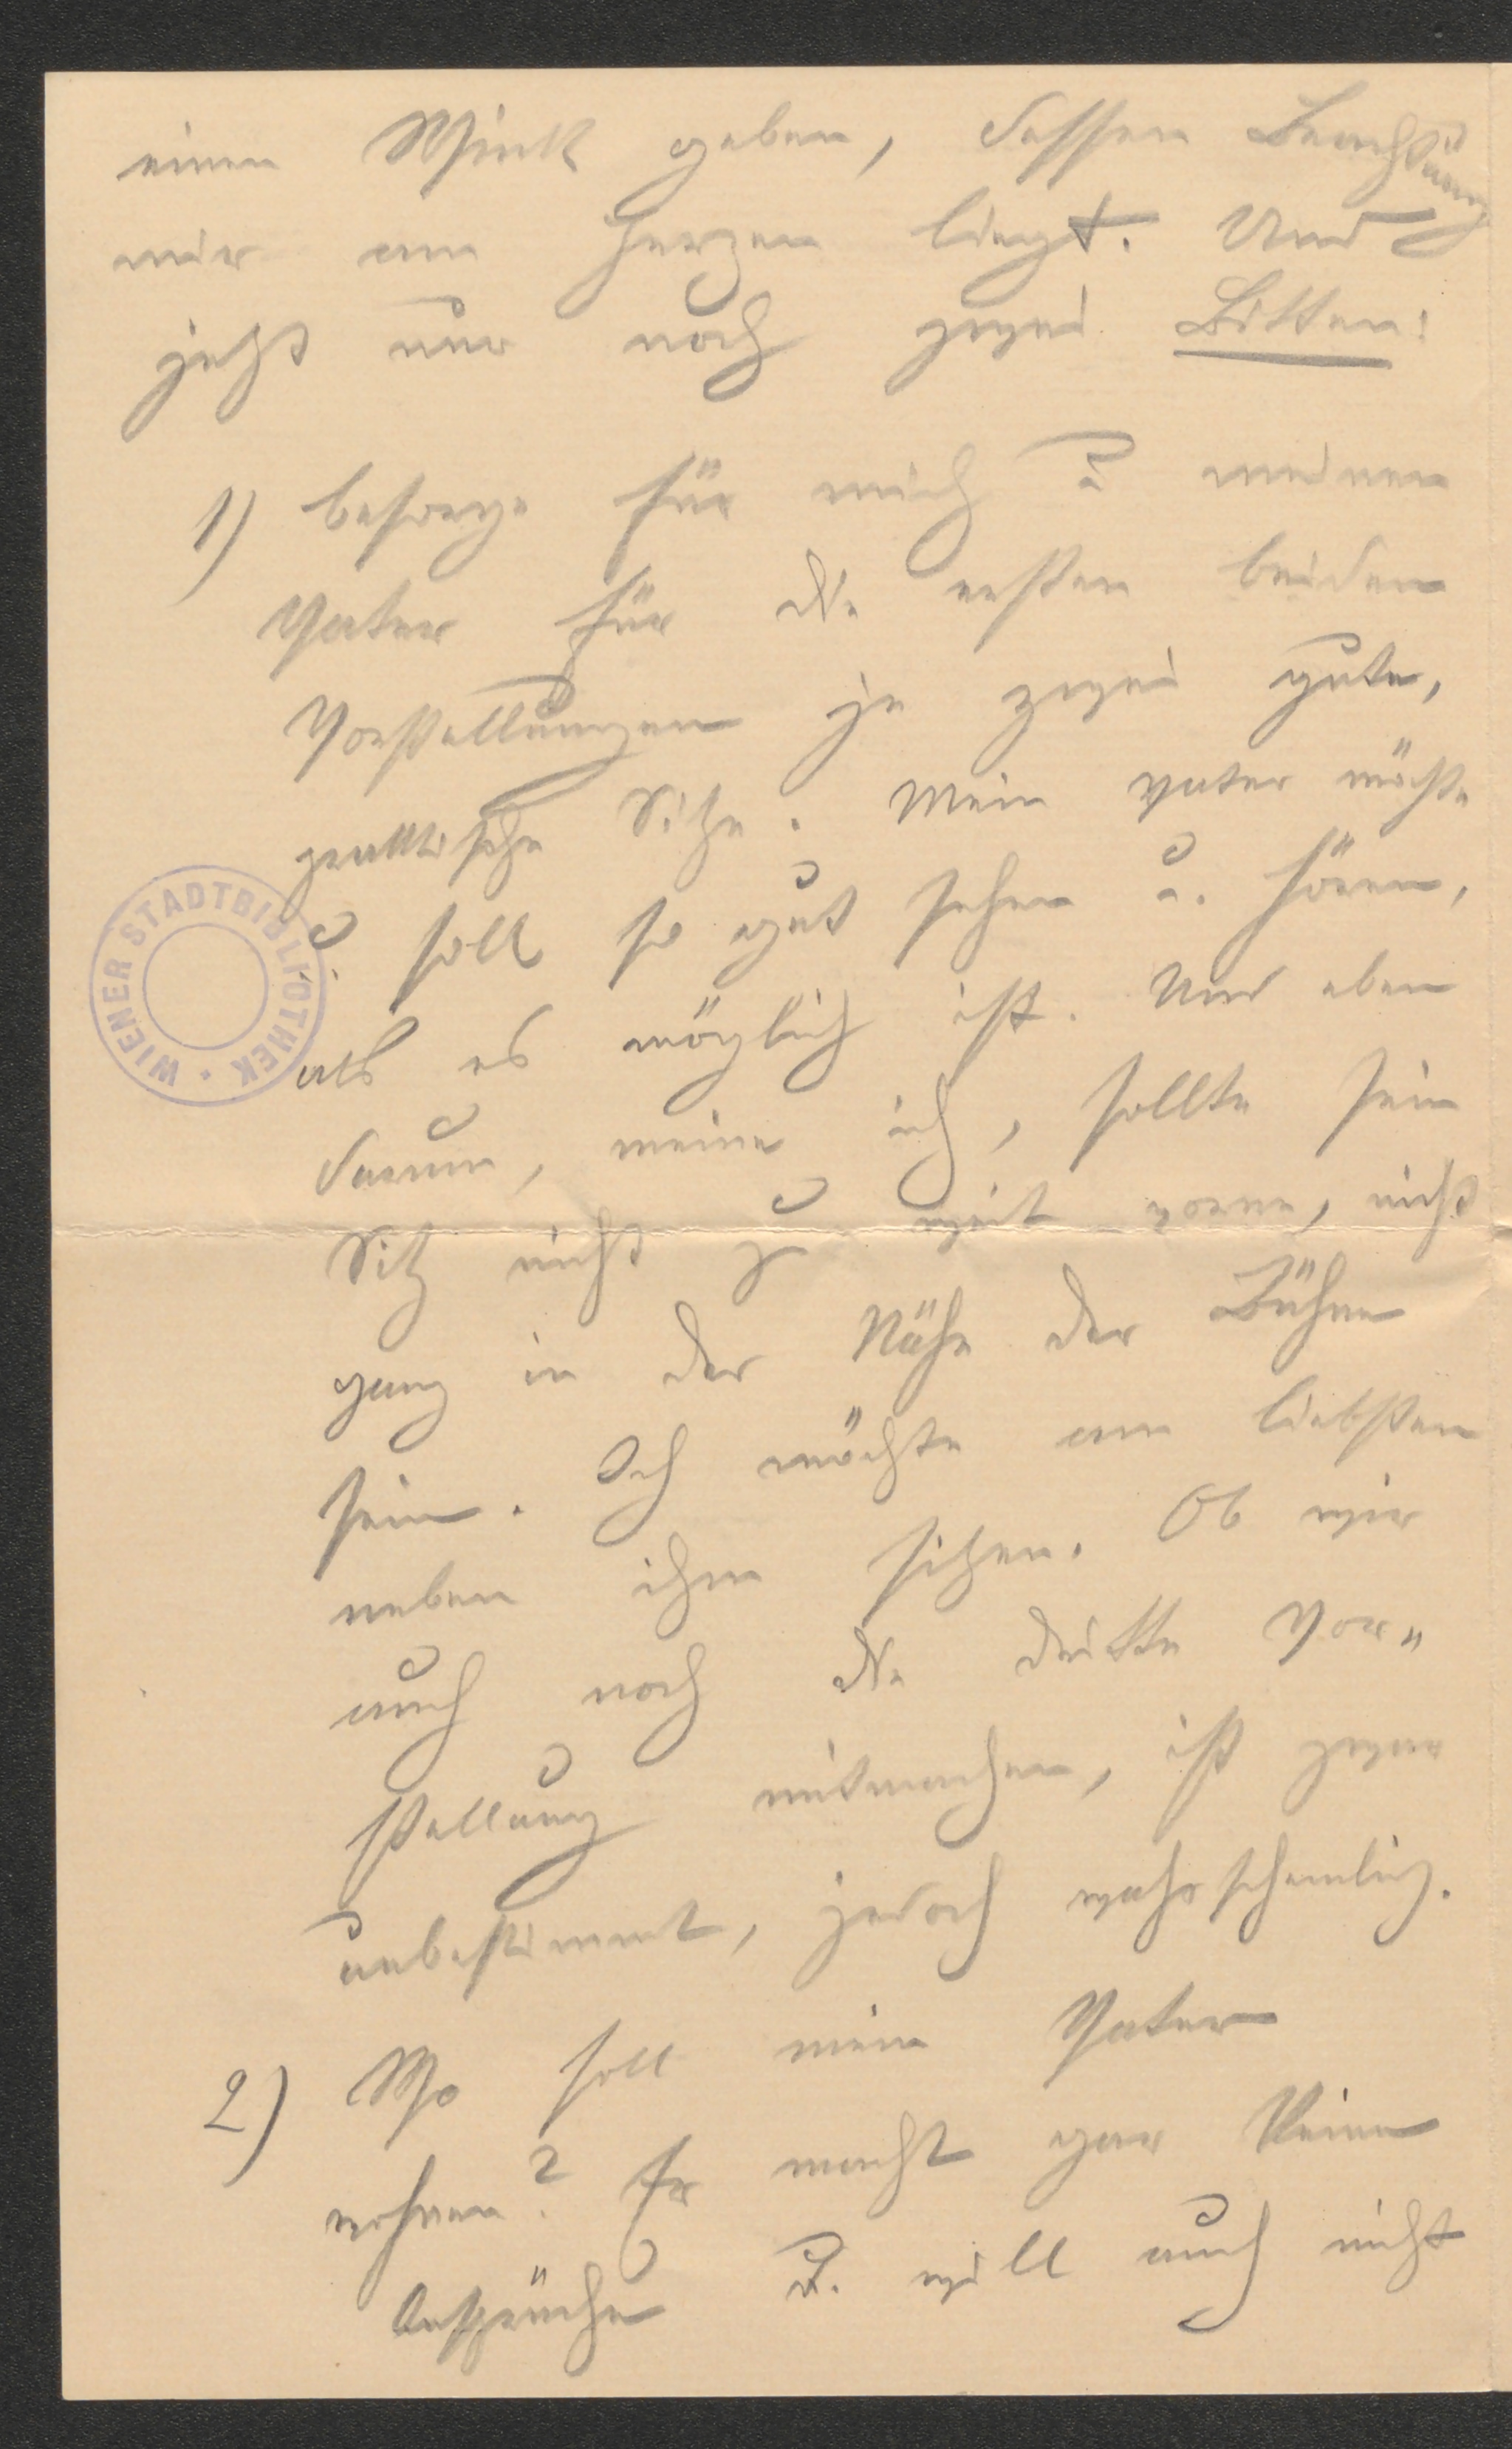 einen Wink geben, dessen Beachtung
mir am Herzen liegt. Und
jetzt nur noch zwei Bitten:
1) besorge für mich u. meinen
Vater für die ersten beiden
Vorstellungen je zwei gute,
praktische Sitze. Mein Vater möchte
u. soll so gut sehen u. hören,
als es möglich ist. Und eben
darum, meine ich, sollte sein
Sitz nicht zu weit vorne, nicht
ganz in der Nähe der Bühne
sein. Ich möchte am liebsten
neben ihm sitzen. Ob wir
auch noch die dritte Vor-
stellung mitmachen, ist zwar
unbestimmt, jedoch wahrscheinlich.
2) Wo soll mein Vater
wohnen? Er macht gar keine
Ansprüche u. will auch nicht
WIENER STADTBIBLIOTHEK